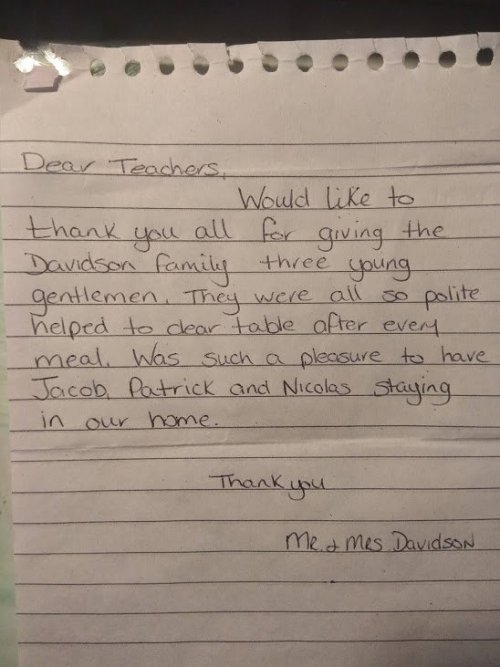 Dear Teachers,
Would like to
thank you all for giving the
Davidson family three young
gentlemen. They were all so polite
helped to clear table after every
meal. Was such a pleasure to have
Jacob, Patrick and Nicolas staying
in our home.
Thank you
Mr. & Mrs Davidson